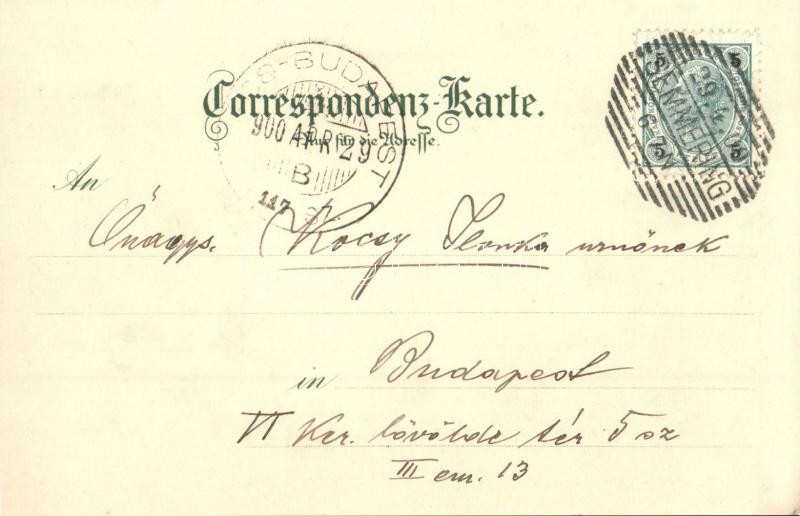 Correspondenz-Karte.
Nur für die Adresse.
BUDAPEST
900 APR 29
B
117
5 5
5 5
SEMMERING
29
An
Önagys. Kocsy Ilonka urnőnek
in Budapest
VI Ker. lövölde tér 5 sz
III em. 13